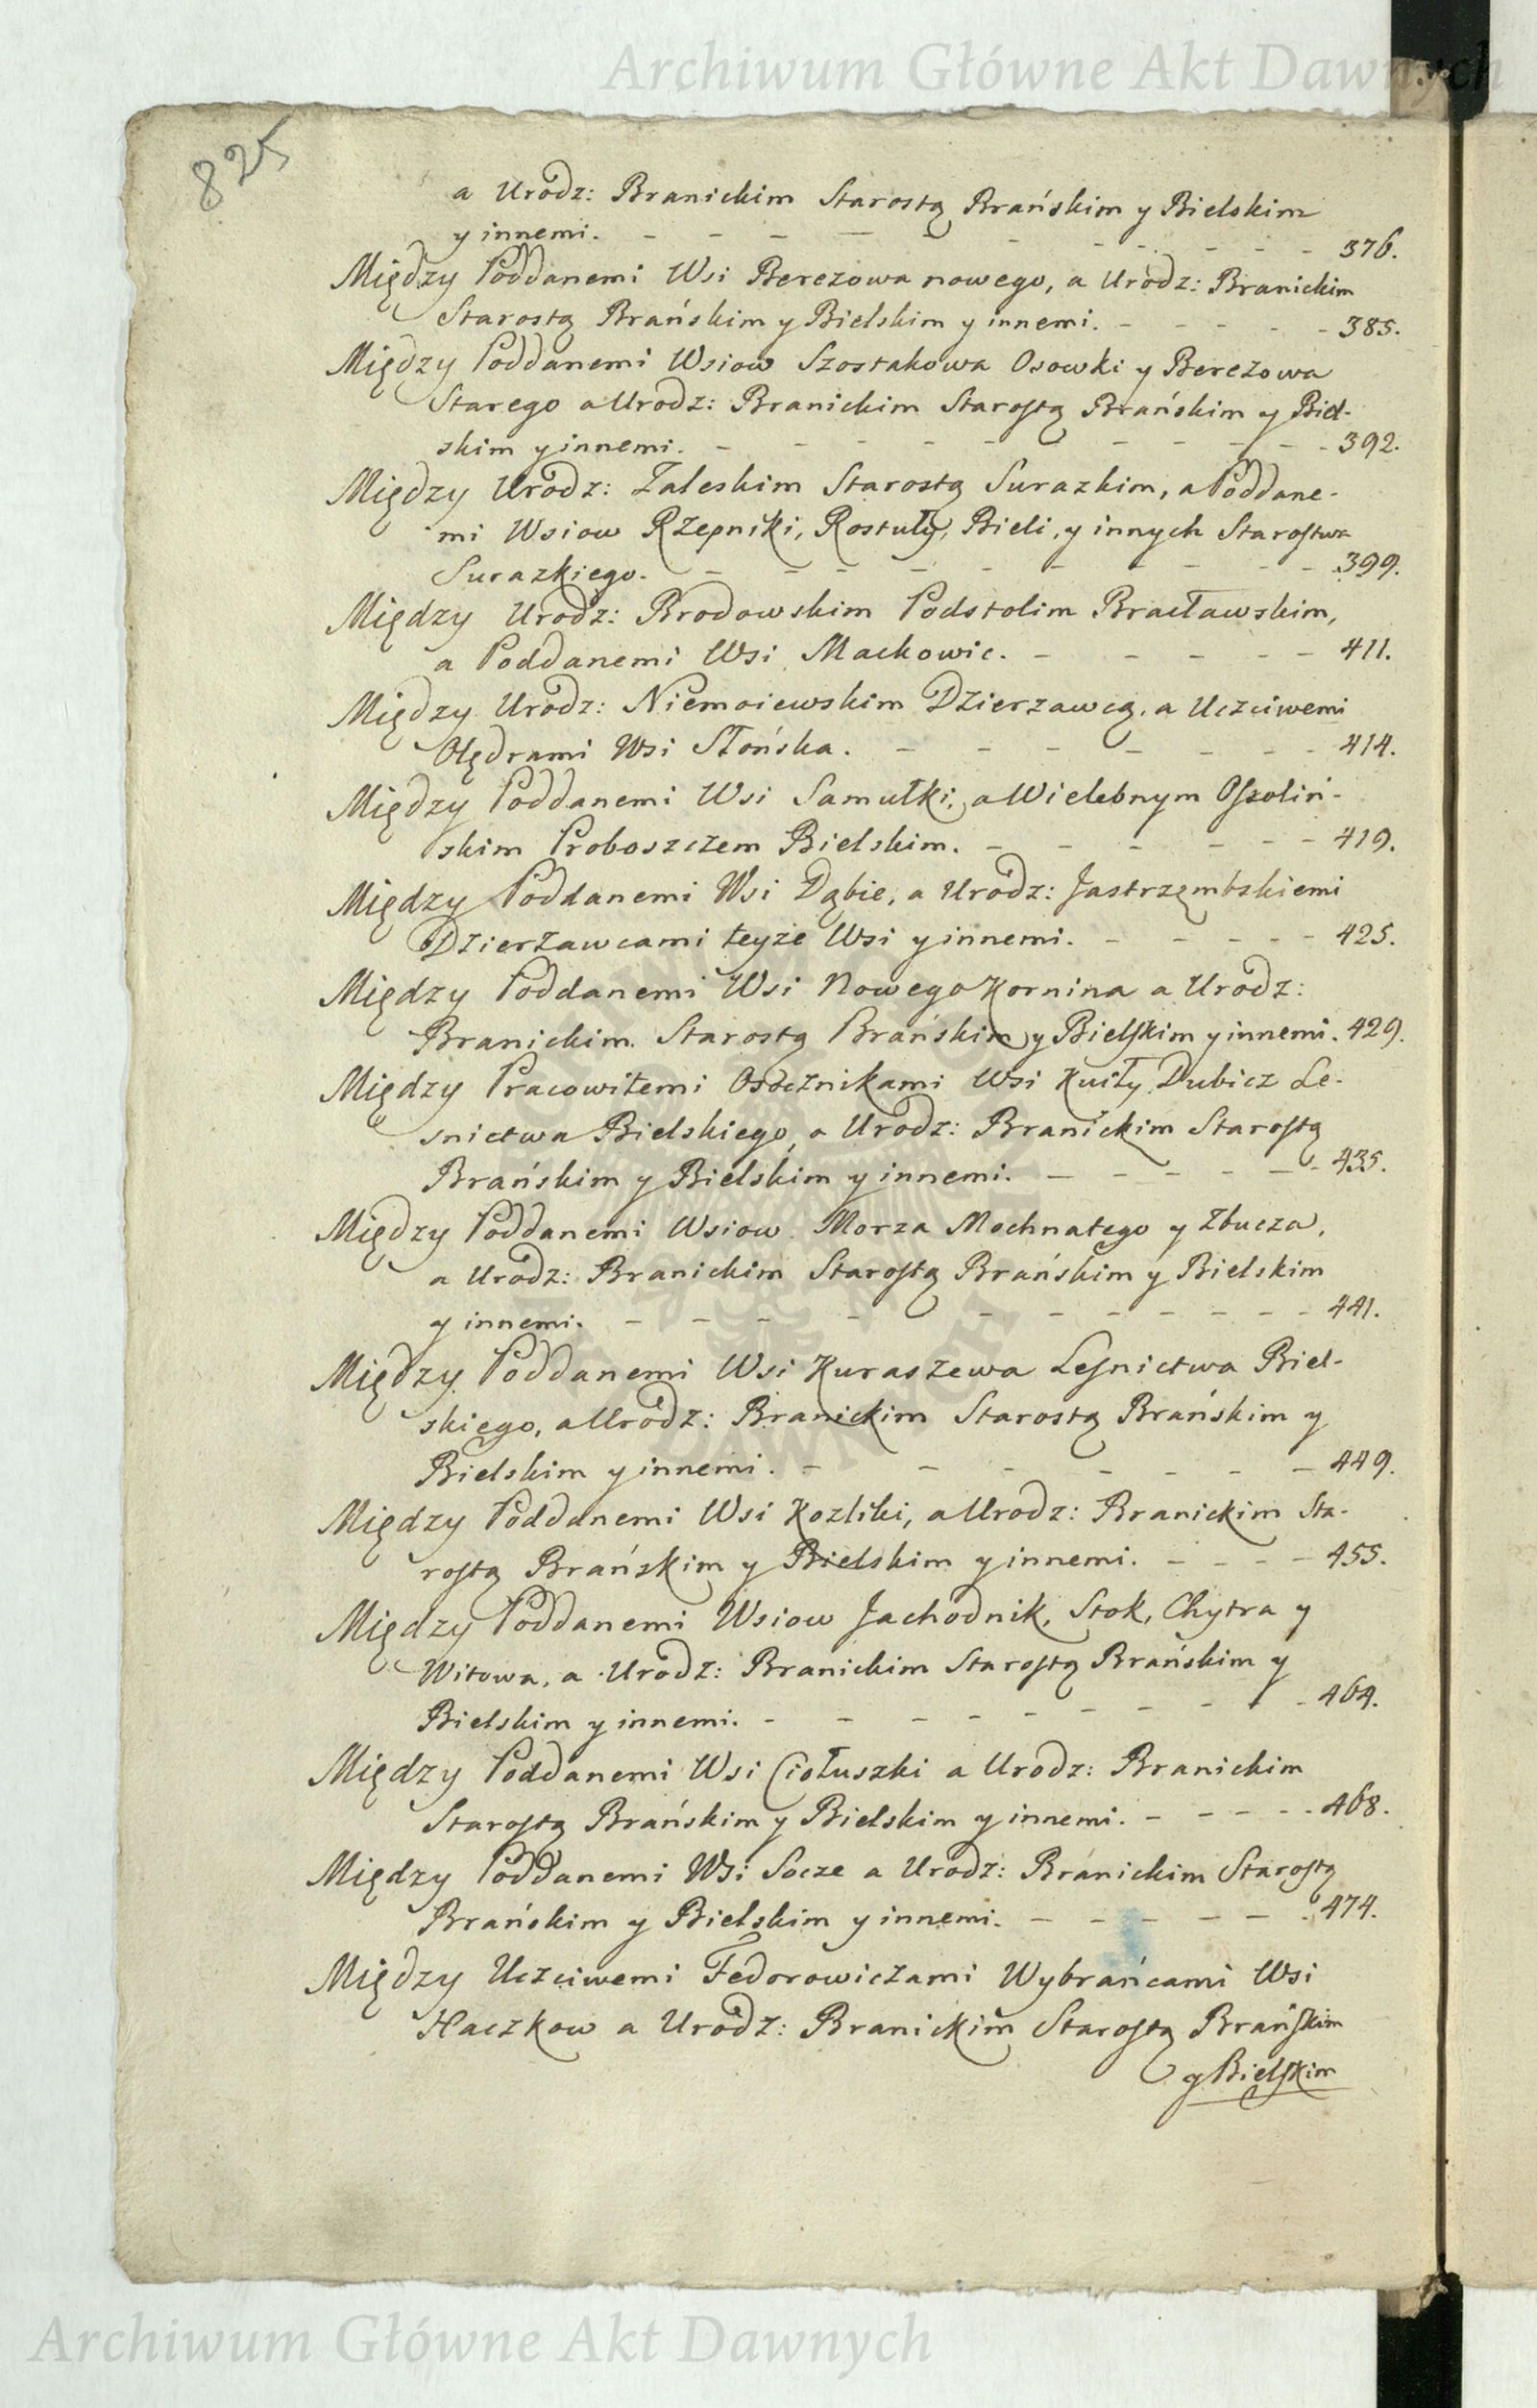 Archiwum Główne Akt Dawnych
825
a Urodz: Branickim Starostą Brańskim y Bielskim
y innemi. - - - - - - - - - - 376.
Między Poddanemi Wsi Berezowa nowego, a Urodz: Branickim
Starostą Brańskim y Bielskim y innemi. - - - - - 385.
Między Poddanemi Wsiow Szostakowa Osowki y Berezowa
Starego a Urodz: Branickim Starostą Brańskim y Biel-
skim y innemi. - - - - - - - - - - 392.
Między Urodz: Zaleskim Starostą Surazkim, a Poddane-
mi Wsiow Rzepniki, Rostuły, Bieli, y innych Starostwa
Surazkiego. - - - - - - - - - - 399.
Między Urodz: Brodowskim Podstolim Bracławskim,
a Poddanemi Wsi Mackowic. - - - - - 411.
Między Urodz: Niemoiewskim Dzierzawcą, a Uczciwemi
Olędrami Wsi Słońska. - - - - - - - 414.
Między Poddanemi Wsi Samułki, a Wielebnym Ossoliń-
skim Proboszczem Bielskim. - - - - - - 419.
Między Poddanemi Wsi Dąbie, a Urodz: Jastrzęmbskiemi
Dzierzawcami teyże Wsi y innemi. - - - - - 425.
Między Poddanemi Wsi Nowego Kornina a Urodz:
Branickim Starostą Brańskim y Bielskim y innemi. 429.
Między Pracowitemi Osocznikami Wsi Kuiły Dubicz Le-
snictwa Bielskiego, a Urodz: Branickim Starostą
Brańskim y Bielskim y innemi. - - - - - - 435.
Między Poddanemi Wsiow Morza Mochnatego y Zbucza,
a Urodz: Branickim Starostą Brańskim y Bielskim
y innemi. - - - - - - - - - - 441.
Między Poddanemi Wsi Kuraszewa Lesnictwa Biel-
skiego, a Urodz: Branickim Starostą Brańskim y
Bielskim y innemi. - - - - - - - 449.
Między Poddanemi Wsi Kozliki, a Urodz: Branickim Sta-
rostą Brańskim y Bielskim y innemi. - - - - 455.
Między Poddanemi Wsiow Jachodnik, Stok, Chytra y
Witowa, a Urodz: Branickim Starostą Brańskim y
Bielskim y innemi. - - - - - - - - 464.
Między Poddanemi Wsi Ciołuszki a Urodz: Branickim
Starostą Brańskim y Bielskim y innemi. - - - - - 468.
Między Poddanemi Wsi Socze a Urodz: Branickim Starostą
Brańskim y Bielskim y innemi. - - - - - - 474.
Między Uczciwemi Fedorowiczami Wybrańcami Wsi
Haczkow a Urodz: Branickim Starostą Brańskim
y Bielskim
Archiwum Główne Akt Dawnych